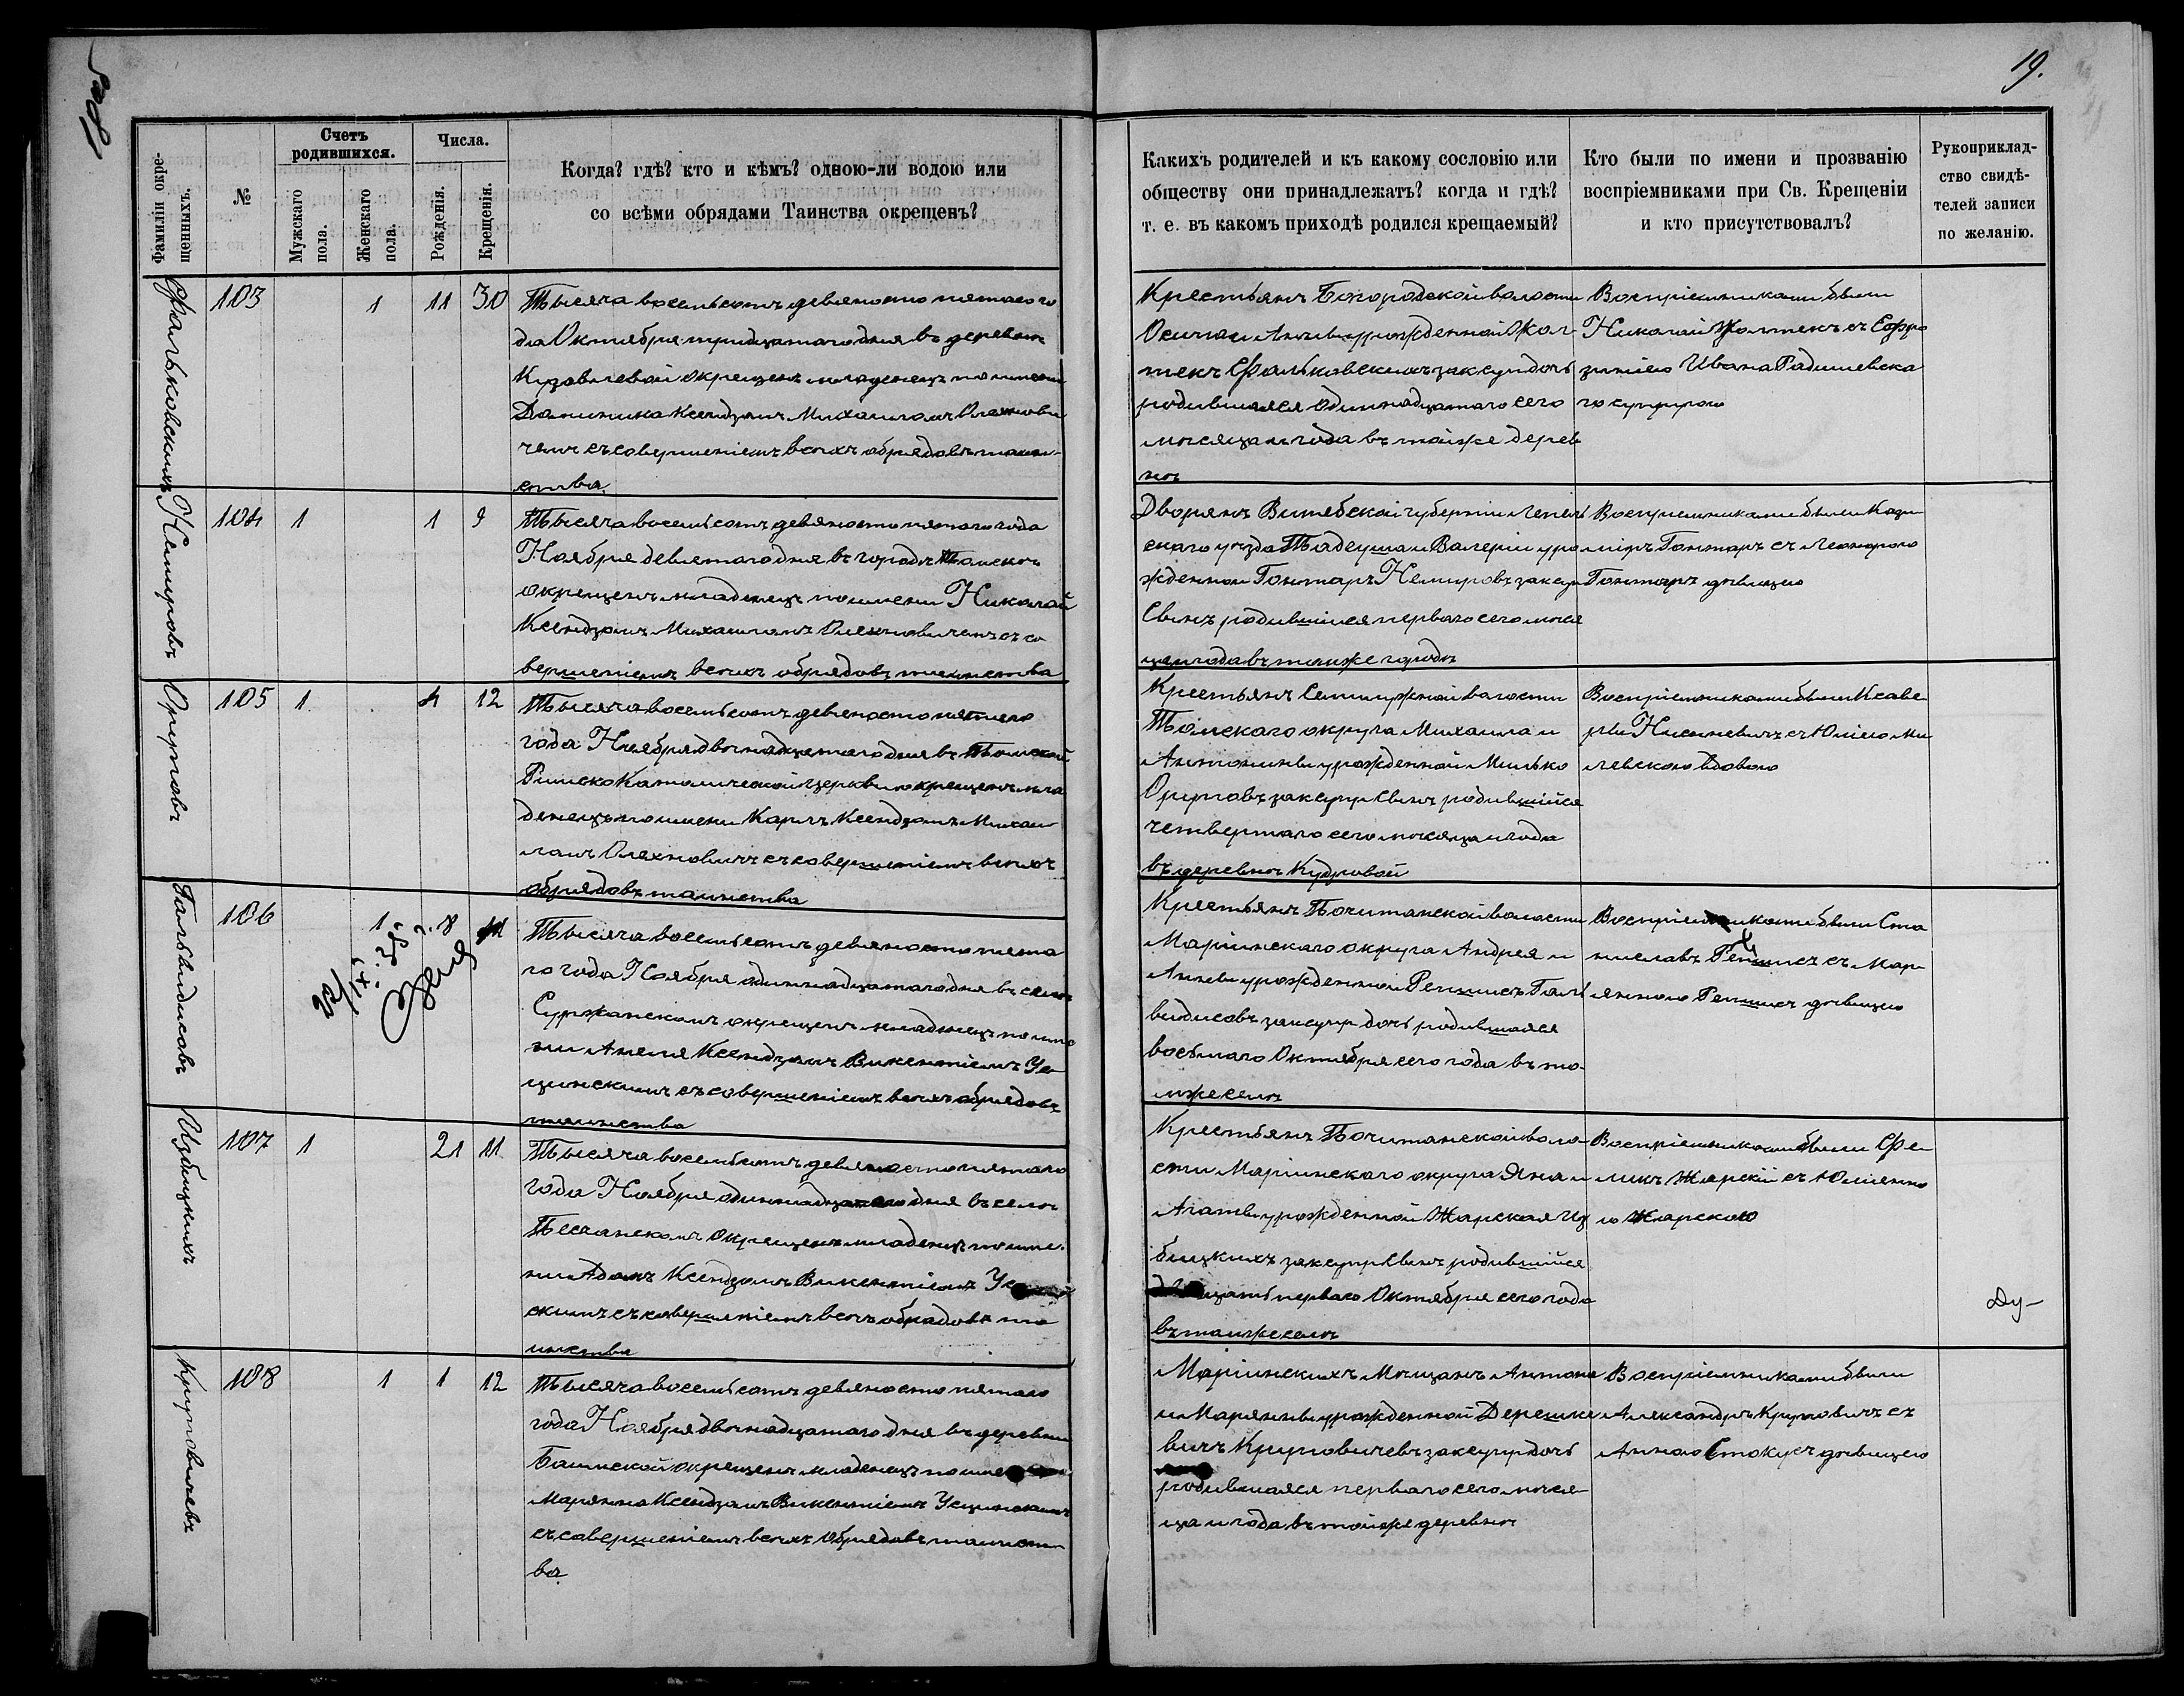 19.
Фамиліи окре-
щенныхъ.
№
Счетъ
родившихся.
Мужскаго
пола.
Женскаго
пола.
Числа.
Рожденія.
Крещенія.
Когда? гдѣ? кто и кѣмъ? одною-ли водою или
со всѣми обрядами Таинства окрещенъ?
Какихъ родителей и къ какому сословію или
обществу они принадлежатъ? когда и гдѣ?
т. е. въ какомъ приходѣ родился крещаемый?
Кто были по имени и прозванію
воспріемниками при Св. Крещеніи
и кто присутствовалъ?
Рукоприклад-
ство свидѣ-
телей записи
по желанію.
Фальковскихъ
103 1 11 30
Тысяча восемьсотъ девяносто пятаго го
да Октября тридцатаго дня въ деревнѣ
окрещенъ младенецъ по имени
Доминика Ксендзомъ Михаиломъ Олехнови
чемъ съ совершеніемъ всѣхъ обрядовъ таин-
ства.
Крестьянъ Богородской волости
Осипа и Анны урожденной Жол-
текъ Фальковскихъ зак супр дочь
родившаяся одиннадцатаго сего
мѣсяца и года въ той же дерев
нѣ
Воспріемниками были
Николай Жолтекъ съ Ефро
зиніею Ивана Радишевска
го супругою
Немировъ
104 1 1 9
Тысяча восемьсотъ девяносто пятаго года
Ноября девятаго дня въ городѣ Томскѣ
окрещенъ младенецъ по имени Николай
Ксендзомъ Михаиломъ Олехновичемъ съ со
вершеніемъ всѣхъ обрядовъ таинства
Дворянъ Витебской губерніи Лепель
скаго уѣзда Тадеуша и Валеріи уро
жденной Гонтаръ Немировъ зак супр
Сынъ родившійся перваго сего мѣся
ца и года въ томъ же городѣ
Воспріемниками были Кази
міръ Гонтаръ съ Леонорою
Гонтаръ дѣвицею
Оруповъ
105 1 4 12
Тысяча восемьсотъ девяносто пятаго
года Ноября двѣнадцатаго дня въ Томской
Римско Католической церкви окрещенъ мла
денецъ по имени Карлъ Ксендзомъ Михаи
ломъ Олехновичъ съ совершеніемъ всѣхъ
обрядовъ таинства
Крестьянъ Семилужной волости
Томскаго округа Михаила и
Антонины урожденной Милько
Оруповъ зак супр Сынъ родившійся
четвертаго сего мѣсяца и года
въ деревнѣ Кудровой
Воспріемниками были Ксаве
рій съ Юліею Ми
левскою вдовою
Гальвидисовъ
106 1 8 11
Тысяча восемьсотъ девяносто пята
го года Ноября одиннадцатаго дня въ селѣ
окрещенъ младенецъ по име
ни Анеля Ксендзомъ Викентіемъ Ус
цинскимъ съ совершеніемъ всѣхъ обрядовъ
таинства
Крестьянъ Почитанской волости
Маріинскаго округа Андрея и
Анны урожденной Репшисъ Галь
видисовъ зак супр дочь родившаяся
восьмаго Октября сего года въ то
мъ же селѣ
Воспріемниками были Ста
ниславъ Репшисъ съ Мар
янною Репшисъ дѣвицею
Избицкихъ
107 1 21 11
Тысяча восемьсотъ девяносто пятаго
года Ноября одиннадцатаго дня въ селѣ
Песчанскомъ окрещенъ младенецъ по име
ни Адамъ Ксендзомъ Викентіемъ
скимъ съ совершеніемъ всѣхъ обрядовъ та
инства
Крестьянъ Почитанской воло-
сти Маріинскаго округа Яна и
Агаты урожденной Жарская Из
бицкихъ зак супр Сынъ родившійся
двадцать перваго Октября сего года
въ томъ же селѣ
Воспріемниками были Фе
ликсъ Жарскій съ Юліянно
ю Жарскою
Круповичевъ
108 1 1 12
Тысяча восемьсотъ девяносто пятаго
года Ноября двѣнадцатаго дня въ деревни
окрещенъ младенецъ по име
Марянна Ксендзомъ Викентіемъ Усцинскимъ
съ совершеніемъ всѣхъ обрядовъ таинст
ва
Маріинскихъ Мѣщанъ Антона
и Марянны урожденной Дерешке
вичъ Круповичевъ зак супр дочь
родившаяся перваго сего мѣся
ца и года въ той же деревнѣ
Воспріемниками были
Александръ Круповичъ съ
Анною Стокусъ дѣвицею